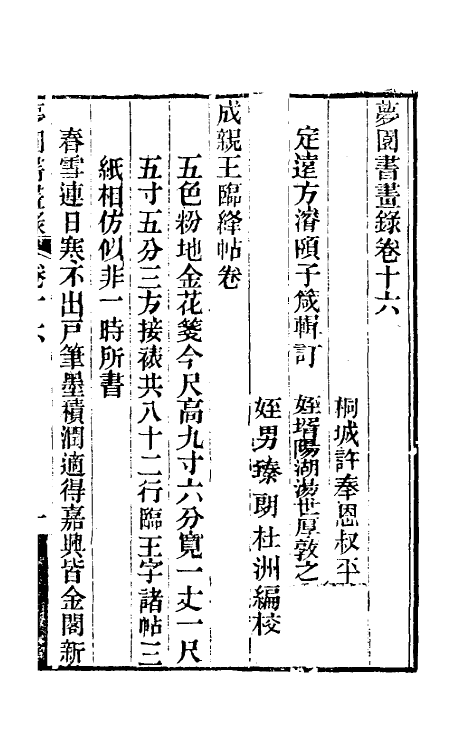 夢園書畫錄卷十六
桐城許奉恩叔平
定遠方濬頤子箴輯訂
姪壻陽湖湯世厚敦之
姪男臻朗杜洲編校
成親王臨絳帖卷
五色粉地金花箋今尺高九寸六分寬一丈一尺
五寸五分三方接裱共八十二行臨王字諸帖三
紙相仿似非一時所書
春雪連日寒不出戶筆墨積潤適得嘉興皆金閣新
夢園書畫錄 卷十六 一